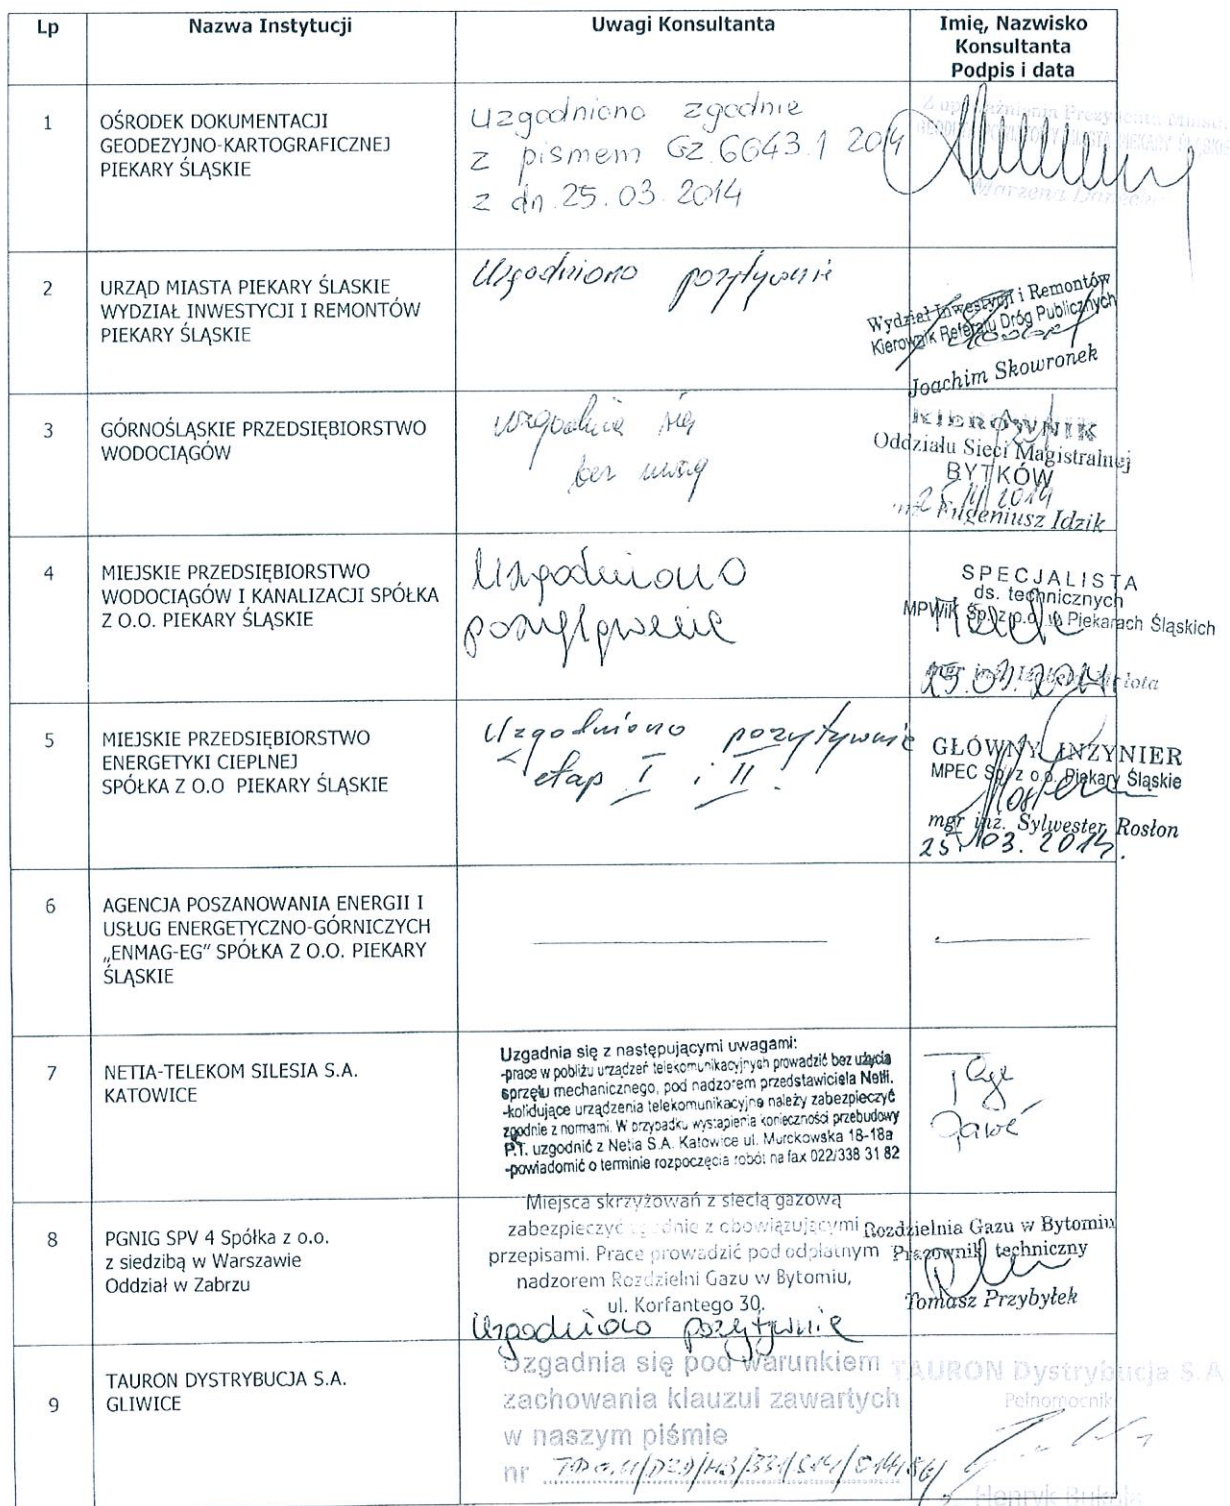 Lp
Nazwa Instytucji
Uwagi Konsultanta
Imię, Nazwisko
Konsultanta
Podpis i data
1
OŚRODEK DOKUMENTACJI
GEODEZYJNO-KARTOGRAFICZNEJ
PIEKARY ŚLĄSKIE
uzgodniono zgodnie
z pismem GZ.6643.1 2014
z dn. 25.03.2014
Marzena
2
URZĄD MIASTA PIEKARY ŚLASKIE
WYDZIAŁ INWESTYCJI I REMONTÓW
PIEKARY ŚLĄSKIE
Uzgodniono pozytywnie
Wydział Inwestycji i Remontów
Kierownik Referatu Dróg Publicznych
Joachim Skowronek
3
GÓRNOŚLĄSKIE PRZEDSIĘBIORSTWO
WODOCIĄGÓW
uzgadnia się
bez uwag
KIEROWNIK
Oddziału Sieci Magistralnej
BYTKÓW
25.III 2014
inż. Eugeniusz Idzik
4
MIEJSKIE PRZEDSIĘBIORSTWO
WODOCIĄGÓW I KANALIZACJI SPÓŁKA
Z O.O. PIEKARY ŚLĄSKIE
Uzgodniono
pozytywnie
SPECJALISTA
ds. technicznych
MPWiK Sp. z o.o. w Piekarach Śląskich
mgr inż.
25.03.2014
5
MIEJSKIE PRZEDSIĘBIORSTWO
ENERGETYKI CIEPLNEJ
SPÓŁKA Z O.O PIEKARY ŚLĄSKIE
Uzgodniono pozytywnie
etap I i II
GŁÓWNY INŻYNIER
MPEC Sp. z o.o. Piekary Śląskie
mgr inż. Sylwester Rosłon
25.03.2014.
6
AGENCJA POSZANOWANIA ENERGII I
USŁUG ENERGETYCZNO-GÓRNICZYCH
„ENMAG-EG” SPÓŁKA Z O.O. PIEKARY
ŚLĄSKIE
7
NETIA-TELEKOM SILESIA S.A.
KATOWICE
Uzgadnia się z następującymi uwagami:
-prace w pobliżu urządzeń telekomunikacyjnych prowadzić bez użycia
sprzętu mechanicznego, pod nadzorem przedstawiciela Netii.
-kolidujące urządzenia telekomunikacyjne należy zabezpieczyć
zgodnie z normami. W przypadku wystąpienia konieczności przebudowy
P.T. uzgodnić z Netia S.A. Katowice ul. Murckowska 18-18a
-powiadomić o terminie rozpoczęcia robót na fax 022/338 31 82
8
PGNIG SPV 4 Spółka z o.o.
z siedzibą w Warszawie
Oddział w Zabrzu
Miejsca skrzyżowań z siecią gazową
zabezpieczyć zgodnie z obowiązującymi
przepisami. Prace prowadzić pod odpłatnym
nadzorem Rozdzielni Gazu w Bytomiu,
ul. Korfantego 30.
Uzgodniono pozytywnie
Rozdzielnia Gazu w Bytomiu
Pracownik techniczny
Tomasz Przybyłek
9
TAURON DYSTRYBUCJA S.A.
GLIWICE
Uzgadnia się pod warunkiem
zachowania klauzul zawartych
w naszym piśmie
nr
TAURON Dystrybucja S.A.
Pełnomocnik
Henryk